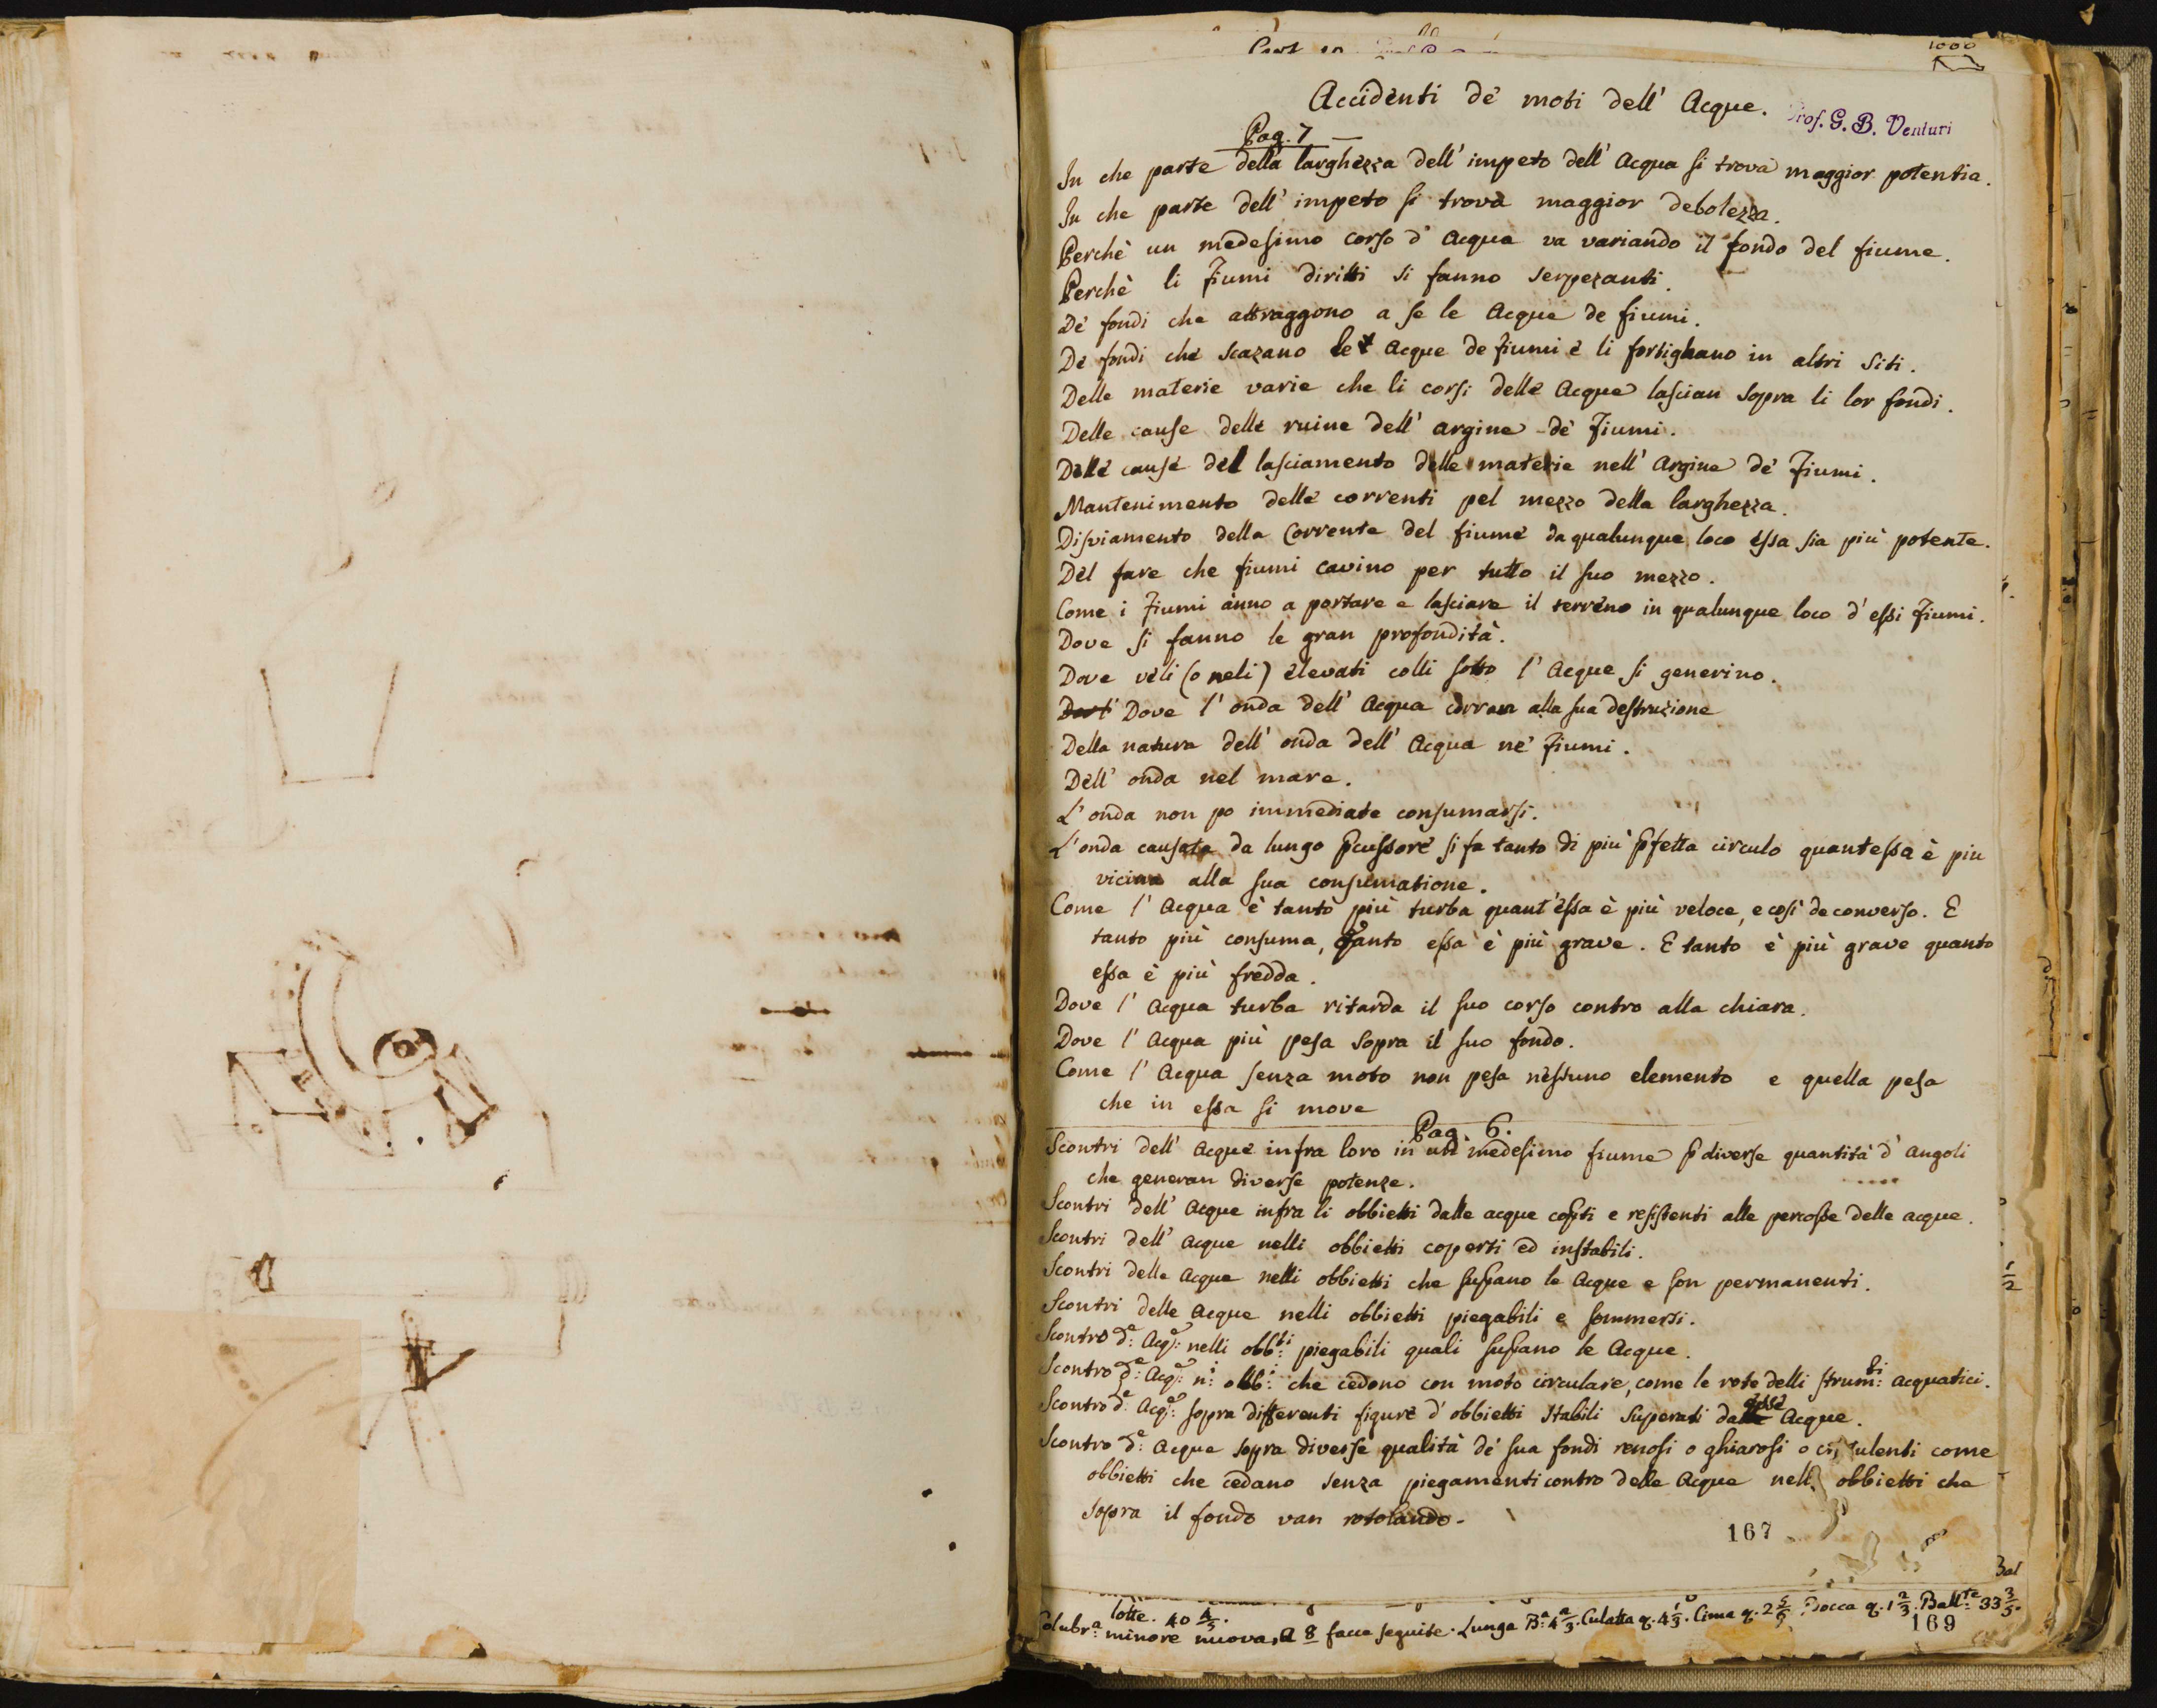 1000
Accidenti de' moti dell' Acque.
Prof. G. B. Venturi
Pag. 7
In che parte della larghezza dell' impeto dell' Acqua si trova maggior potentia.
In che parte dell' impeto si trova maggior debolezza.
Perchè un medesimo corso d' Acqua va variando il fondo del fiume.
Perchè li fiumi diritti si fanno serpezanti.
De' fondi che attraggono a se le Acque de fiumi.
De' fondi che scazano le Acque de fiumi e li fortighano in altri siti.
Delle materie varie che li corsi delle Acque lascian sopra li lor fondi.
Delle cause delle ruine dell' argine de' fiumi.
Delle cause del lasciamento delle materie nell' Argine de' fiumi.
Mantenimento delle correnti pel mezzo della larghezza.
Disviamento della Corrente del fiume da qualunque loco essa sia più potente.
Del fare che fiumi cavino per tutto il suo mezzo.
Come i fiumi ànno a portare e lasciare il terreno in qualunque loco d' essi fiumi.
Dove si fanno le gran profondità.
Dove veli (o neli) elevati colli sotto l' Acque si generino.
Dove l' onda dell' Acqua corran alla sua destruzione
Della natura dell' onda dell' Acqua ne' fiumi.
Dell' onda nel mare.
L' onda non po immediate consumarsi.
L' onda causata da lungo p̄cussore si fa tanto di più p̄fetta circulo quant essa è piu
vicina alla sua consumatione.
Come l' Acqua è tanto più turba quant' essa è più veloce, e così de converso. E
tanto più consuma, quanto essa è più grave. E tanto è più grave quanto
essa è più fredda.
Dove l' Acqua turba ritarda il suo corso contro alla chiara.
Dove l' Acqua più pesa sopra il suo fondo.
Come l' Acqua senza moto non pesa nessuno elemento e quella pesa
che in essa si move
Pag. 6.
Scontri dell' Acque infra loro in un medesimo fiume p̄ diverse quantità d' angoli
che generan diverse potenze.
Scontri dell' Acque infra li obbietti dalle acque cop̄ti e resistenti alle percosse delle acque.
Scontri dell' Acque nelli obbietti coperti ed instabili.
Scontri delle Acque nelli obbietti che sup̄ano le Acque e son permanenti.
Scontri delle Acque nelli obbietti piegabili e sommersi.
Scontro d.e Acq.e nelli obb.ti piegabili quali sup̄ano le Acque.
Scontro d.e Acq.e n.i obb.i che cedono con moto circulare, come le rote delli strum.ti acquatici.
Scontro d.e Acq.e sopra differenti figure d' obbietti stabili superati da esse Acque.
Scontro d.e Acque sopra diverse qualità de' sua fondi renosi o ghiarosi o come
obbietti che cedano senza piegamenti contro delle Acque nelli obbietti che
sopra il fondo van rotolando.
167
Bal
lotte. 40 4/5.
Colubr.a minore nuova, a 8 facce seguite. Lunga B.a 4 2/3. Culatta q. 4 1/3. Cima q. 2 5/9. Bocca q. 1 2/3. Ball.te 33 3/5.
169
1/2